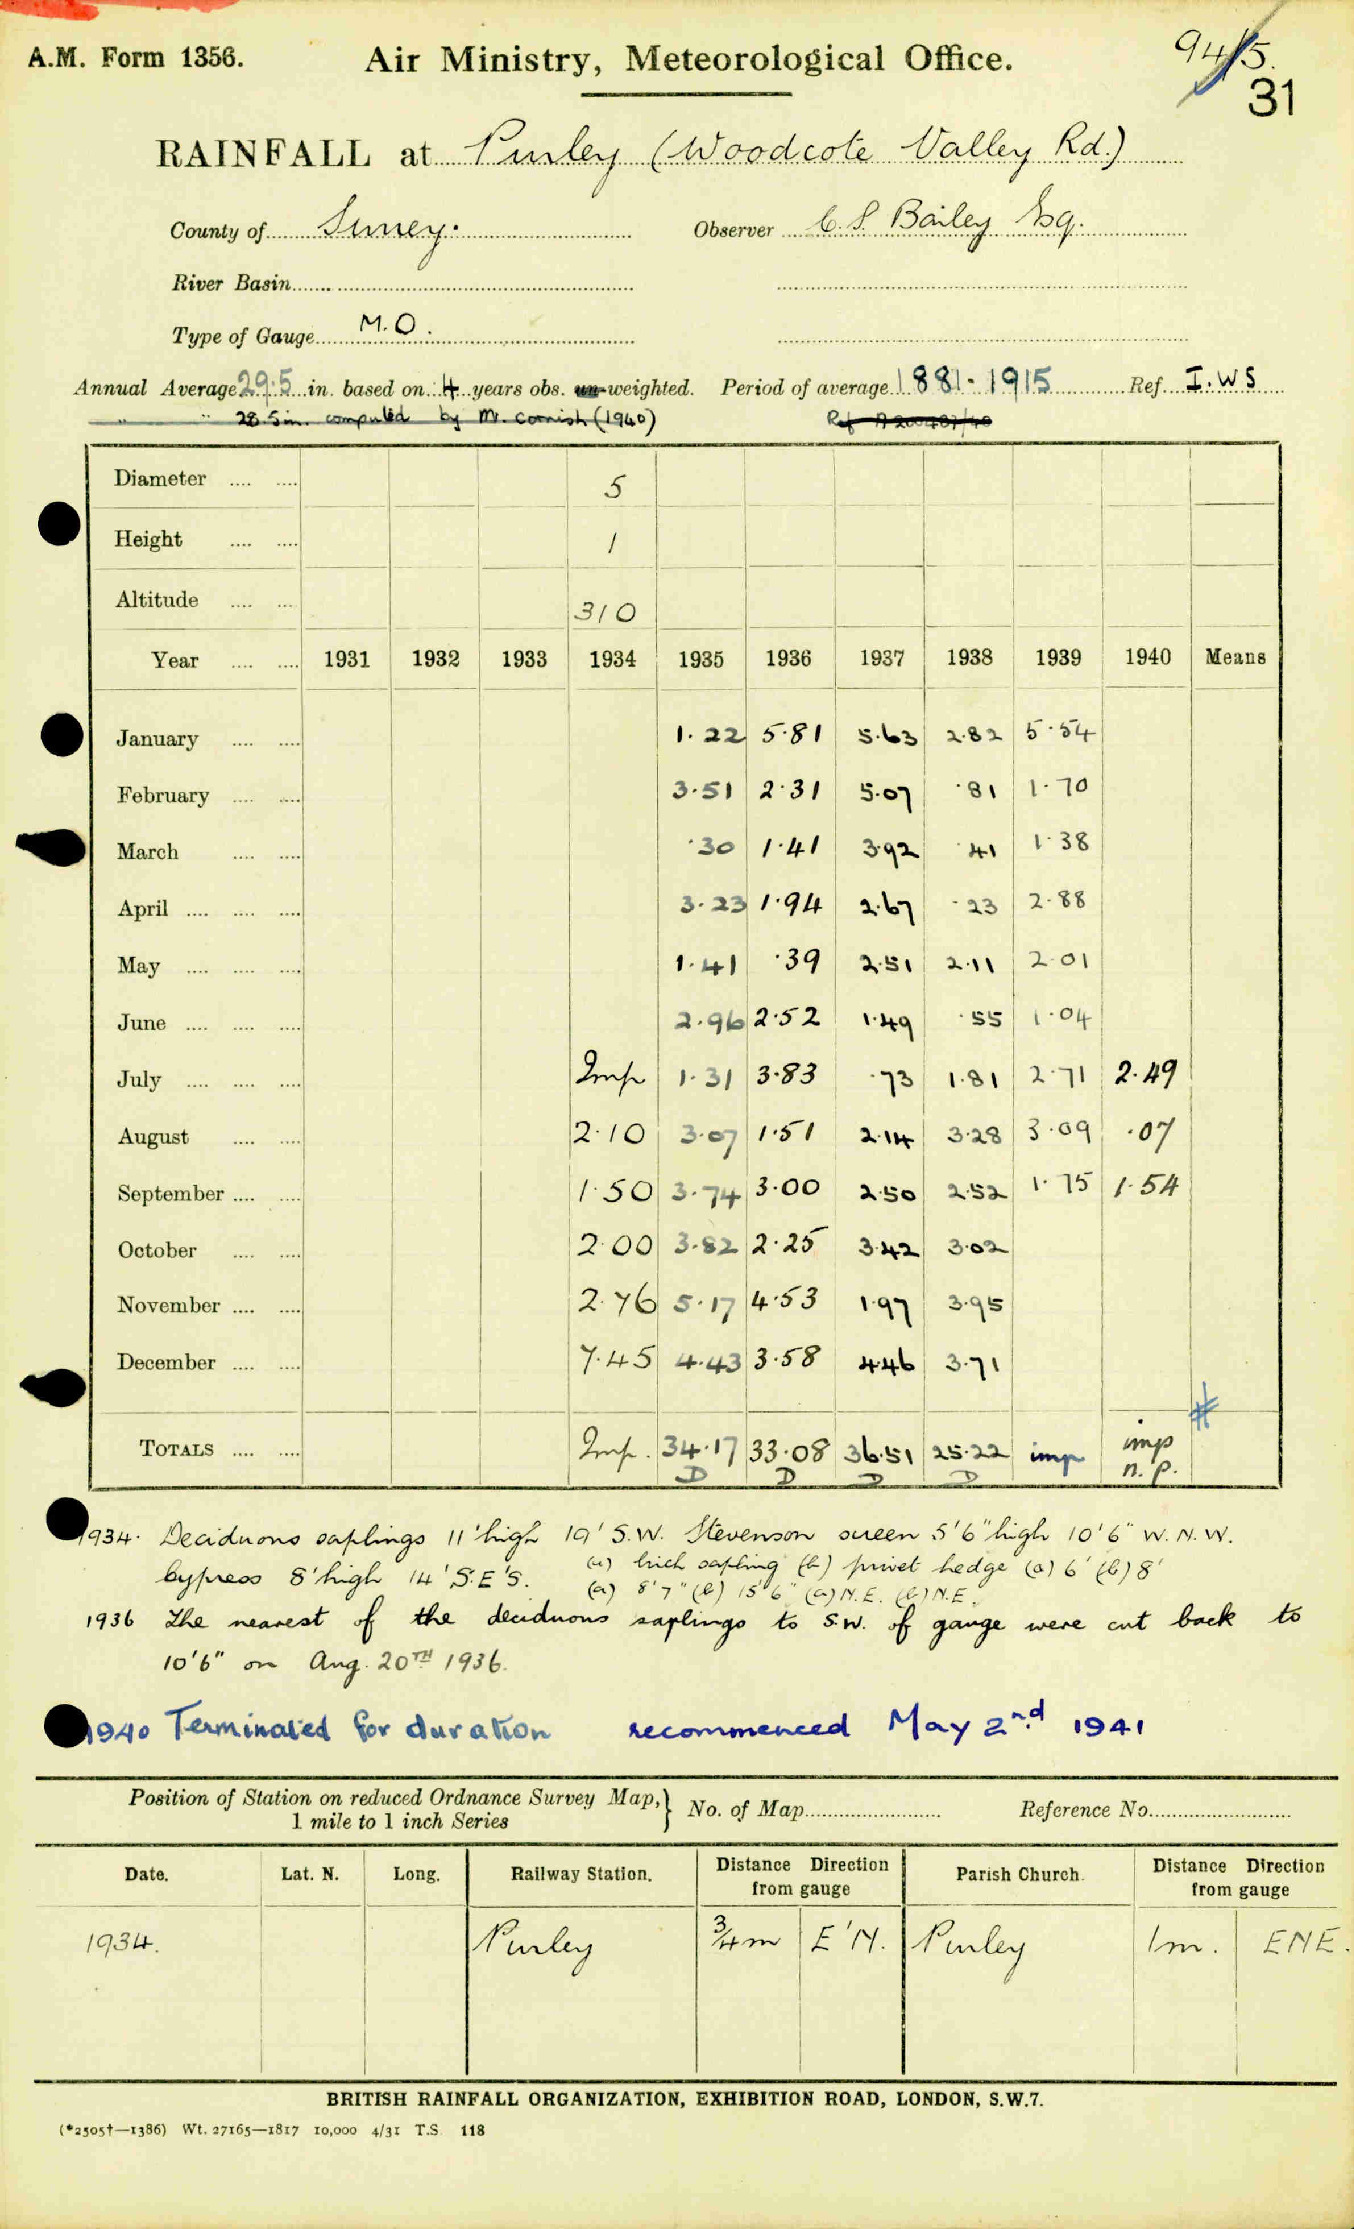 A.M. Form 1356.
Air Ministry, Meteorological Office.
94/5.
31
RAINFALL at Purley (Woodcote Valley Rd.)
County of Surrey. Observer C. S. Bailey Esq.
River Basin
Type of Gauge M.O.
Annual Average 29.5 in. based on 4 years obs. un-weighted. Period of average 1881-1915 Ref. I.W S
" " 28.5 in. computed by Mr. Cornish (1940) Ref
Diameter 5
Height 1
Altitude 310
Year 1931 1932 1933 1934 1935 1936 1937 1938 1939 1940 Means
January 1.22 5.81 5.63 2.82 5.54
February 3.51 2.31 5.07 .81 1.70
March .30 1.41 3.92 .41 1.38
April 3.23 1.94 2.67 .23 2.88
May 1.41 .39 2.51 2.11 2.01
June 2.96 2.52 1.49 .55 1.04
July Imp 1.31 3.83 .73 1.81 2.71 2.49
August 2.10 3.07 1.51 2.14 3.28 3.09 .07
September 1.50 3.74 3.00 2.50 2.52 1.75 1.54
October 2.00 3.82 2.25 3.42 3.02
November 2.76 5.17 4.53 1.97 3.95
December 7.45 4.43 3.58 4.46 3.71
#
TOTALS Imp. 34.17 33.08 36.51 25.22 imp imp
D D D D n.p.
1934. Deciduous saplings 11' high 19' S.W. Stevenson screen 5'6" high 10'6" W.N.W.
Cypress 8' high 14' S.E'S. (a) birch sapling (b) privet hedge (a) 6' (b) 8'
(a) 8'7" (b) 15'6" (a) N.E. (b) N.E.
1936 The nearest of the deciduous saplings to S.W. of gauge were cut back to
10'6" on Aug. 20TH 1936.
1940 Terminated for duration recommenced May 2nd 1941
Position of Station on reduced Ordnance Survey Map,} No. of Map Reference No.
1 mile to 1 inch Series
Date. Lat. N. Long. Railway Station. Distance Direction from gauge Parish Church. Distance Direction from gauge
1934. Purley 3/4m E'N. Purley 1m. ENE.
BRITISH RAINFALL ORGANIZATION, EXHIBITION ROAD, LONDON, S.W.7.
(*2505†—1386) Wt. 27165—1817 10,000 4/31 T.S 118